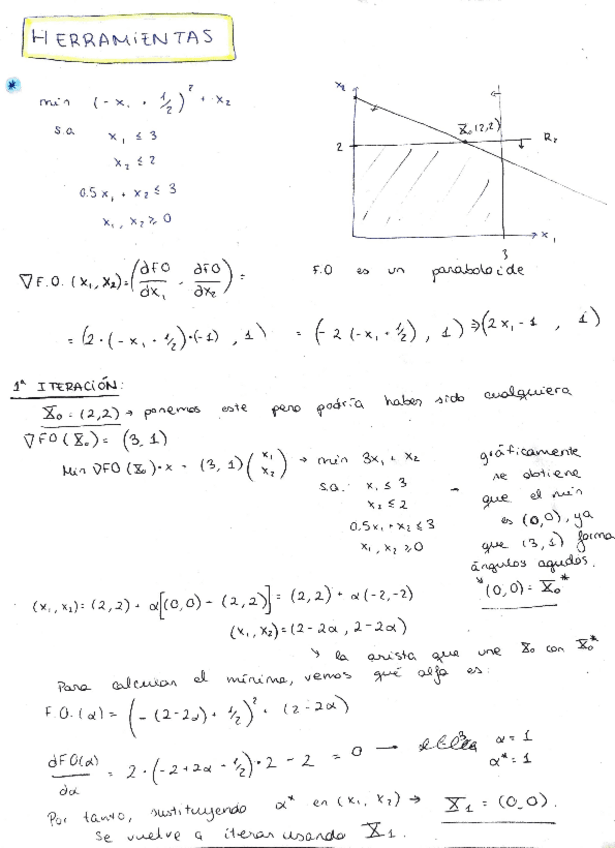 HERRAMIENTAS
* min (-x₁ + 1/2)² + x₂
s.a x₁ ≤ 3
x₂ ≤ 2
0.5x₁ + x₂ ≤ 3
x₁, x₂ ≥ 0
x₂
X₀(2,2)
R₂
2
x₁
3
∇F.O. (x₁, x₂) = (dFO/dx₁ , dFO/dx₂) =
F.O es un paraboloide
= (2·(-x₁ + 1/2)·(-1) , 1) = (-2(-x₁ + 1/2), 1) ⇒ (2x₁-1 , 1)
1ª ITERACIÓN:
X₀ = (2,2) → ponemos este pero podría haber sido cualquiera
∇FO (X₀) = (3, 1)
Min ∇FO (X₀)·x = (3, 1) (x₁ x₂) → min 3x₁ + x₂
s.a: x₁ ≤ 3
x₂ ≤ 2
0.5x₁ + x₂ ≤ 3
x₁, x₂ ≥ 0
gráficamente
se obtiene
que el min
es (0,0), ya
que (3,1) forma
ángulos agudos.
(0,0) = X₀*
(x₁, x₂) = (2,2) + α[(0,0) - (2,2)] = (2,2) + α(-2,-2)
(x₁, x₂) = (2-2α, 2-2α)
↘ la arista que une X₀ con X₀*
Para calcular el mínimo, vemos qué alfa es:
F.O.(α) = (-(2-2α) + 1/2)² + (2-2α)
dFO(α)/dα = 2·(-2+2α+1/2)·2 - 2 = 0 → α = 1
α* = 1
Por tanto, sustituyendo α* en (x₁, x₂) → X₁ = (0,0).
Se vuelve a iterar usando X₁.